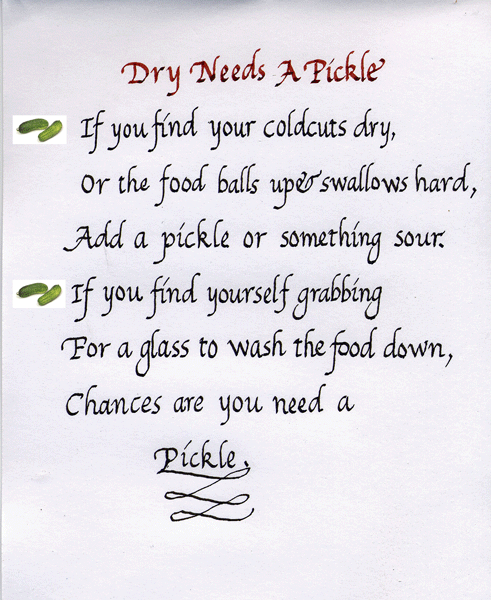 Dry Needs A Pickle
If you find your coldcuts dry,
Or the food balls up & swallows hard,
Add a pickle or something sour.
If you find yourself grabbing
For a glass to wash the food down,
Chances are you need a
Pickle.